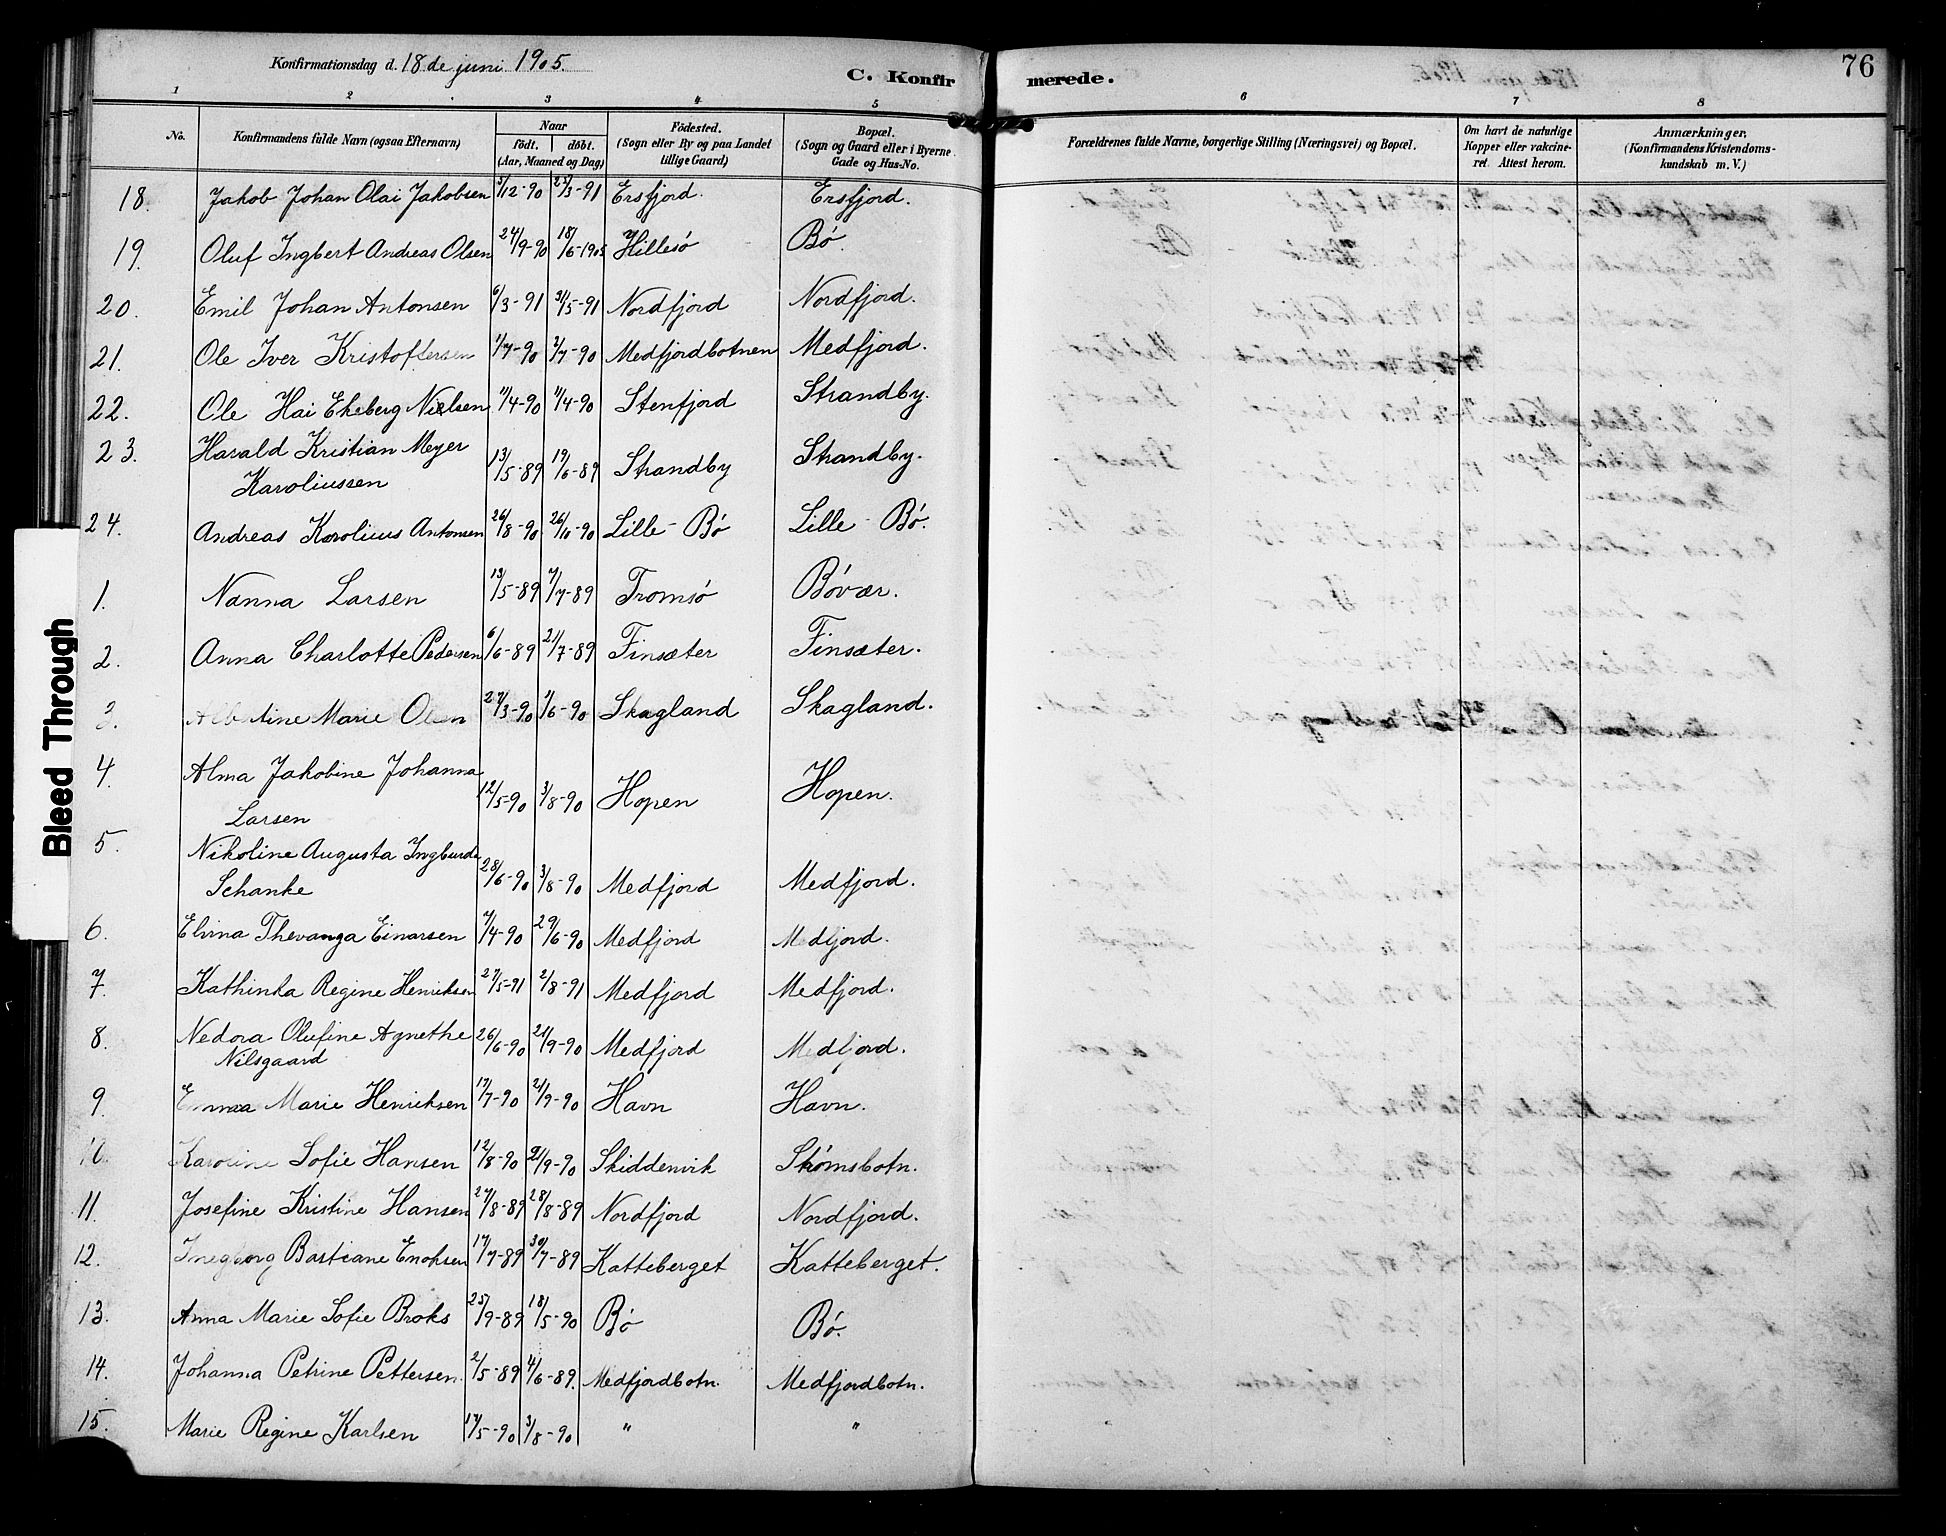 Konfirmationsdag d. 18de juni 1905.
C. Konfir merede. 76
1 2 3 4 5 6 7 8
No.
Konfirmandens fulde Navn (ogsaa Efternavn)
Naar
født. døbt.
(Aar, Maaned og Dag)
Födested.
(Sogn eller By og paa Landet
tillige Gaard)
Bopæl.
(Sogn og Gaard eller i Byerne
Gade og Hus-No.
Forældrenes fulde Navne, borgerlige Stilling (Næringsvei) og Bopæl.
Om havt de naturlige
Kopper eller vakcine-
ret. Attest herom.
Anmærkninger.
(Konfirmandens Kristendoms-
kundskab m. V.)
18. Jakob Johan Olai Jakobsen 5/12-90 25/3-91 Ersfjord. Ersfjord.
19. Oluf Ingbert Andreas Olsen 24/9-90 18/6-1905 Hillesö Bø.
20. Emil Johan Antonsen 6/3-91 31/5-91 Nordfjord Nordfjord.
21. Ole Iver Kristoffersen 1/7-90 2/7-90 Medfjordbotnen Medfjord.
22. Ole Hai Ekeberg Nielsen 11/4-90 11/4-90 Stenfjord Strandby.
23. Harald Kristian Meyer
Karoliussen 13/5-89 19/6-89 Strandby Strandby.
24. Andreas Karolius Antonsen 26/8-90 26/10-90 Lille-Bó Lille-Bó.
1. Nanna Larsen 13/5-89 7/7-89 Tromsó Bóvær.
2. Anna Charlotte Pedersen 6/6-89 21/7-89 Finsæter Finsæter.
3. Albertine Marie Olsen 27/3-90 1/6-90 Skagland Skagland.
4. Alma Jakobine Johanna
Larsen 12/5-90 3/8-90 Hopen Hopen.
5. Nikoline Augusta Ingburde
Schanke 28/6-90 3/8-90 Medfjord Medfjord.
6. Elvina Thevanga Einarsen 7/4-90 29/6-90 Medfjord Medfjord.
7. Kathinka Regine Henriksen 27/5-91 2/8-91 Medfjord Medfjord.
8. Nedora Olufine Agnethe
Nilsgaard 26/6-90 21/9-90 Medfjord Medfjord.
9. Emma Marie Henriksen 17/7-90 21/9-90 Havn Havn.
10. Karoline Sofie Hansen 12/8-90 21/9-90 Skiddenvik Strømsbotn.
11. Josefine Kristine Hansen 27/8-89 28/8-89 Nordfjord Nordfjord.
12. Ingeborg Bastiane Enoksen 17/7-89 30/7-89 Katteberget Katteberget.
13. Anna Marie Sofie Broks 25/9-89 18/5-90 Bó Bó.
14. Johanna Petrine Pettersen. 2/5-89 4/6-89. Medfjordbotn. Medfjordbotn.
15. Marie Regine Karlsen 17/5-90 3/8-90 " "
Bleed Through